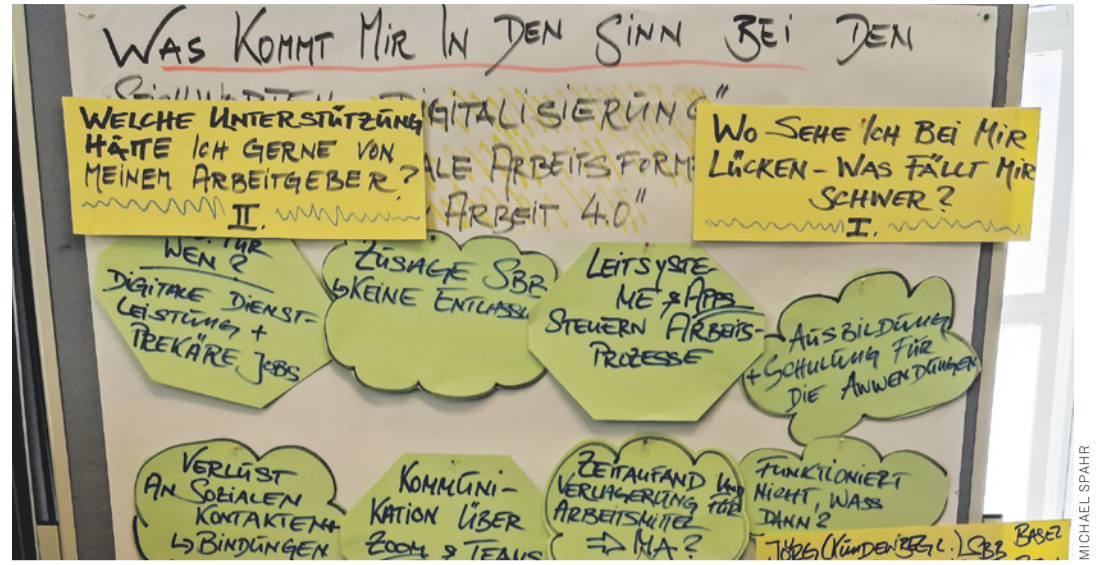 WAS KOMMT MIR IN DEN SINN BEI DEN
DIGITALISIERUNG"
ALE ARBEITSFORM
ARBEIT 4.0"
WELCHE UNTERSTÜTZUNG
HÄTTE ICH GERNE VON
MEINEM ARBEITGEBER?
II.
WO SEHE ICH BEI MIR
LÜCKEN - WAS FÄLLT MIR
SCHWER?
I.
FÜR
WEN?
DIGITALE DIENST-
LEISTUNG +
PREKÄRE JOBS
ZUSAGE SBB
↳ KEINE ENTLASSU
LEITSYSTE-
ME & APPS
STEUERN ARBEITS-
PROZESSE
AUSBILDUNG
+ SCHULUNG FÜR
DIE ANWENDUNGEN
VERLUST
AN SOZIALEN
KONTAKTEN +
↳ BINDUNGEN
KOMMUNI-
KATION ÜBER
ZOOM & TEAMS
ZEITAUFAND UND
VERLAGERUNG FÜR
ARBEITSMITTEL
⇒ MA?
FUNKTIONIERT
NICHT, WASS
DANN?
JÖRG (KUNDENBEGL.) SBB BASEL
MICHAEL SPAHR